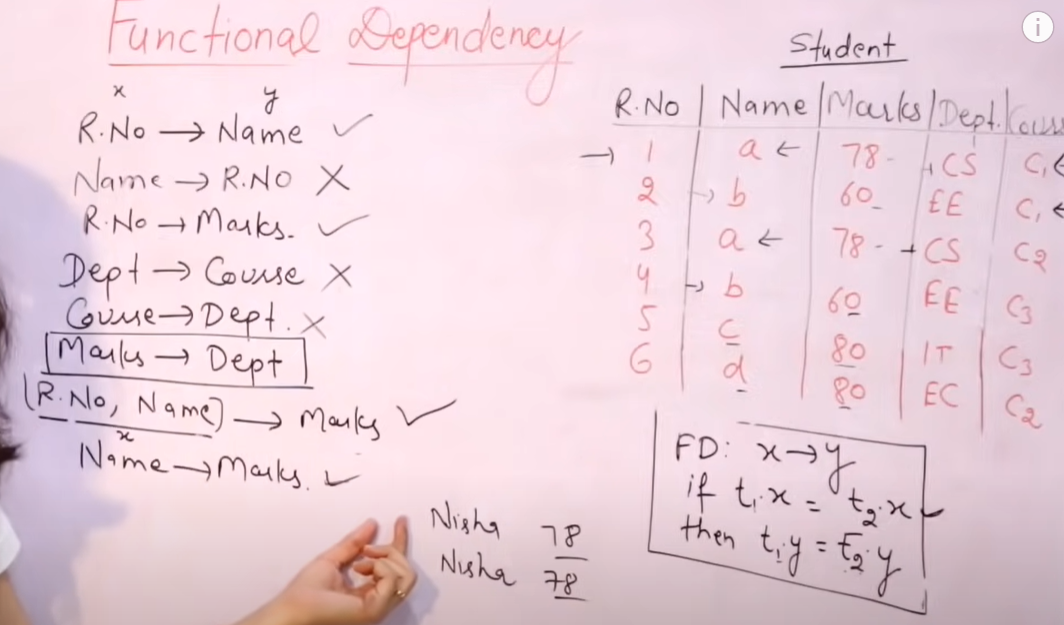 Functional Dependency
x y
R.No → Name ✓
Name → R.NO X
R.No → Marks. ✓
Dept → Course X
Course → Dept. X
Marks → Dept
(R.No, Name) → Marks ✓
x
Name → Marks. ✓
Nisha 78
Nisha 78
Student
R.No | Name | Marks | Dept. | Cours
→ 1 a ← 78 - → CS C₁ ←
2 → b 60 - EE C₁ ←
3 a ← 78 - → CS C2
4 → b 60 EE C3
5 c 80 IT C3
6 d 80 EC C2
FD: x → y
if t₁.x = t₂.x
then t₁.y = t₂.y
i